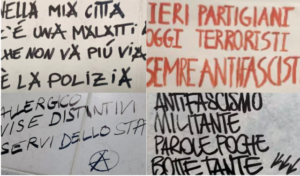 NELLA MIA CITTÀ
C'È UNA MALATTI
CHE NON VA PIÙ VIA
È LA POLIZIA
IERI PARTIGIANI
OGGI TERRORISTI
SEMPRE ANTIFASCIST
ALLERGICO
DIVISE DISTINTIVI
SERVI DELLO STA
A
ANTIFASCISMO
MILITANTE
PAROLE POCHE
BOTTE TANTE